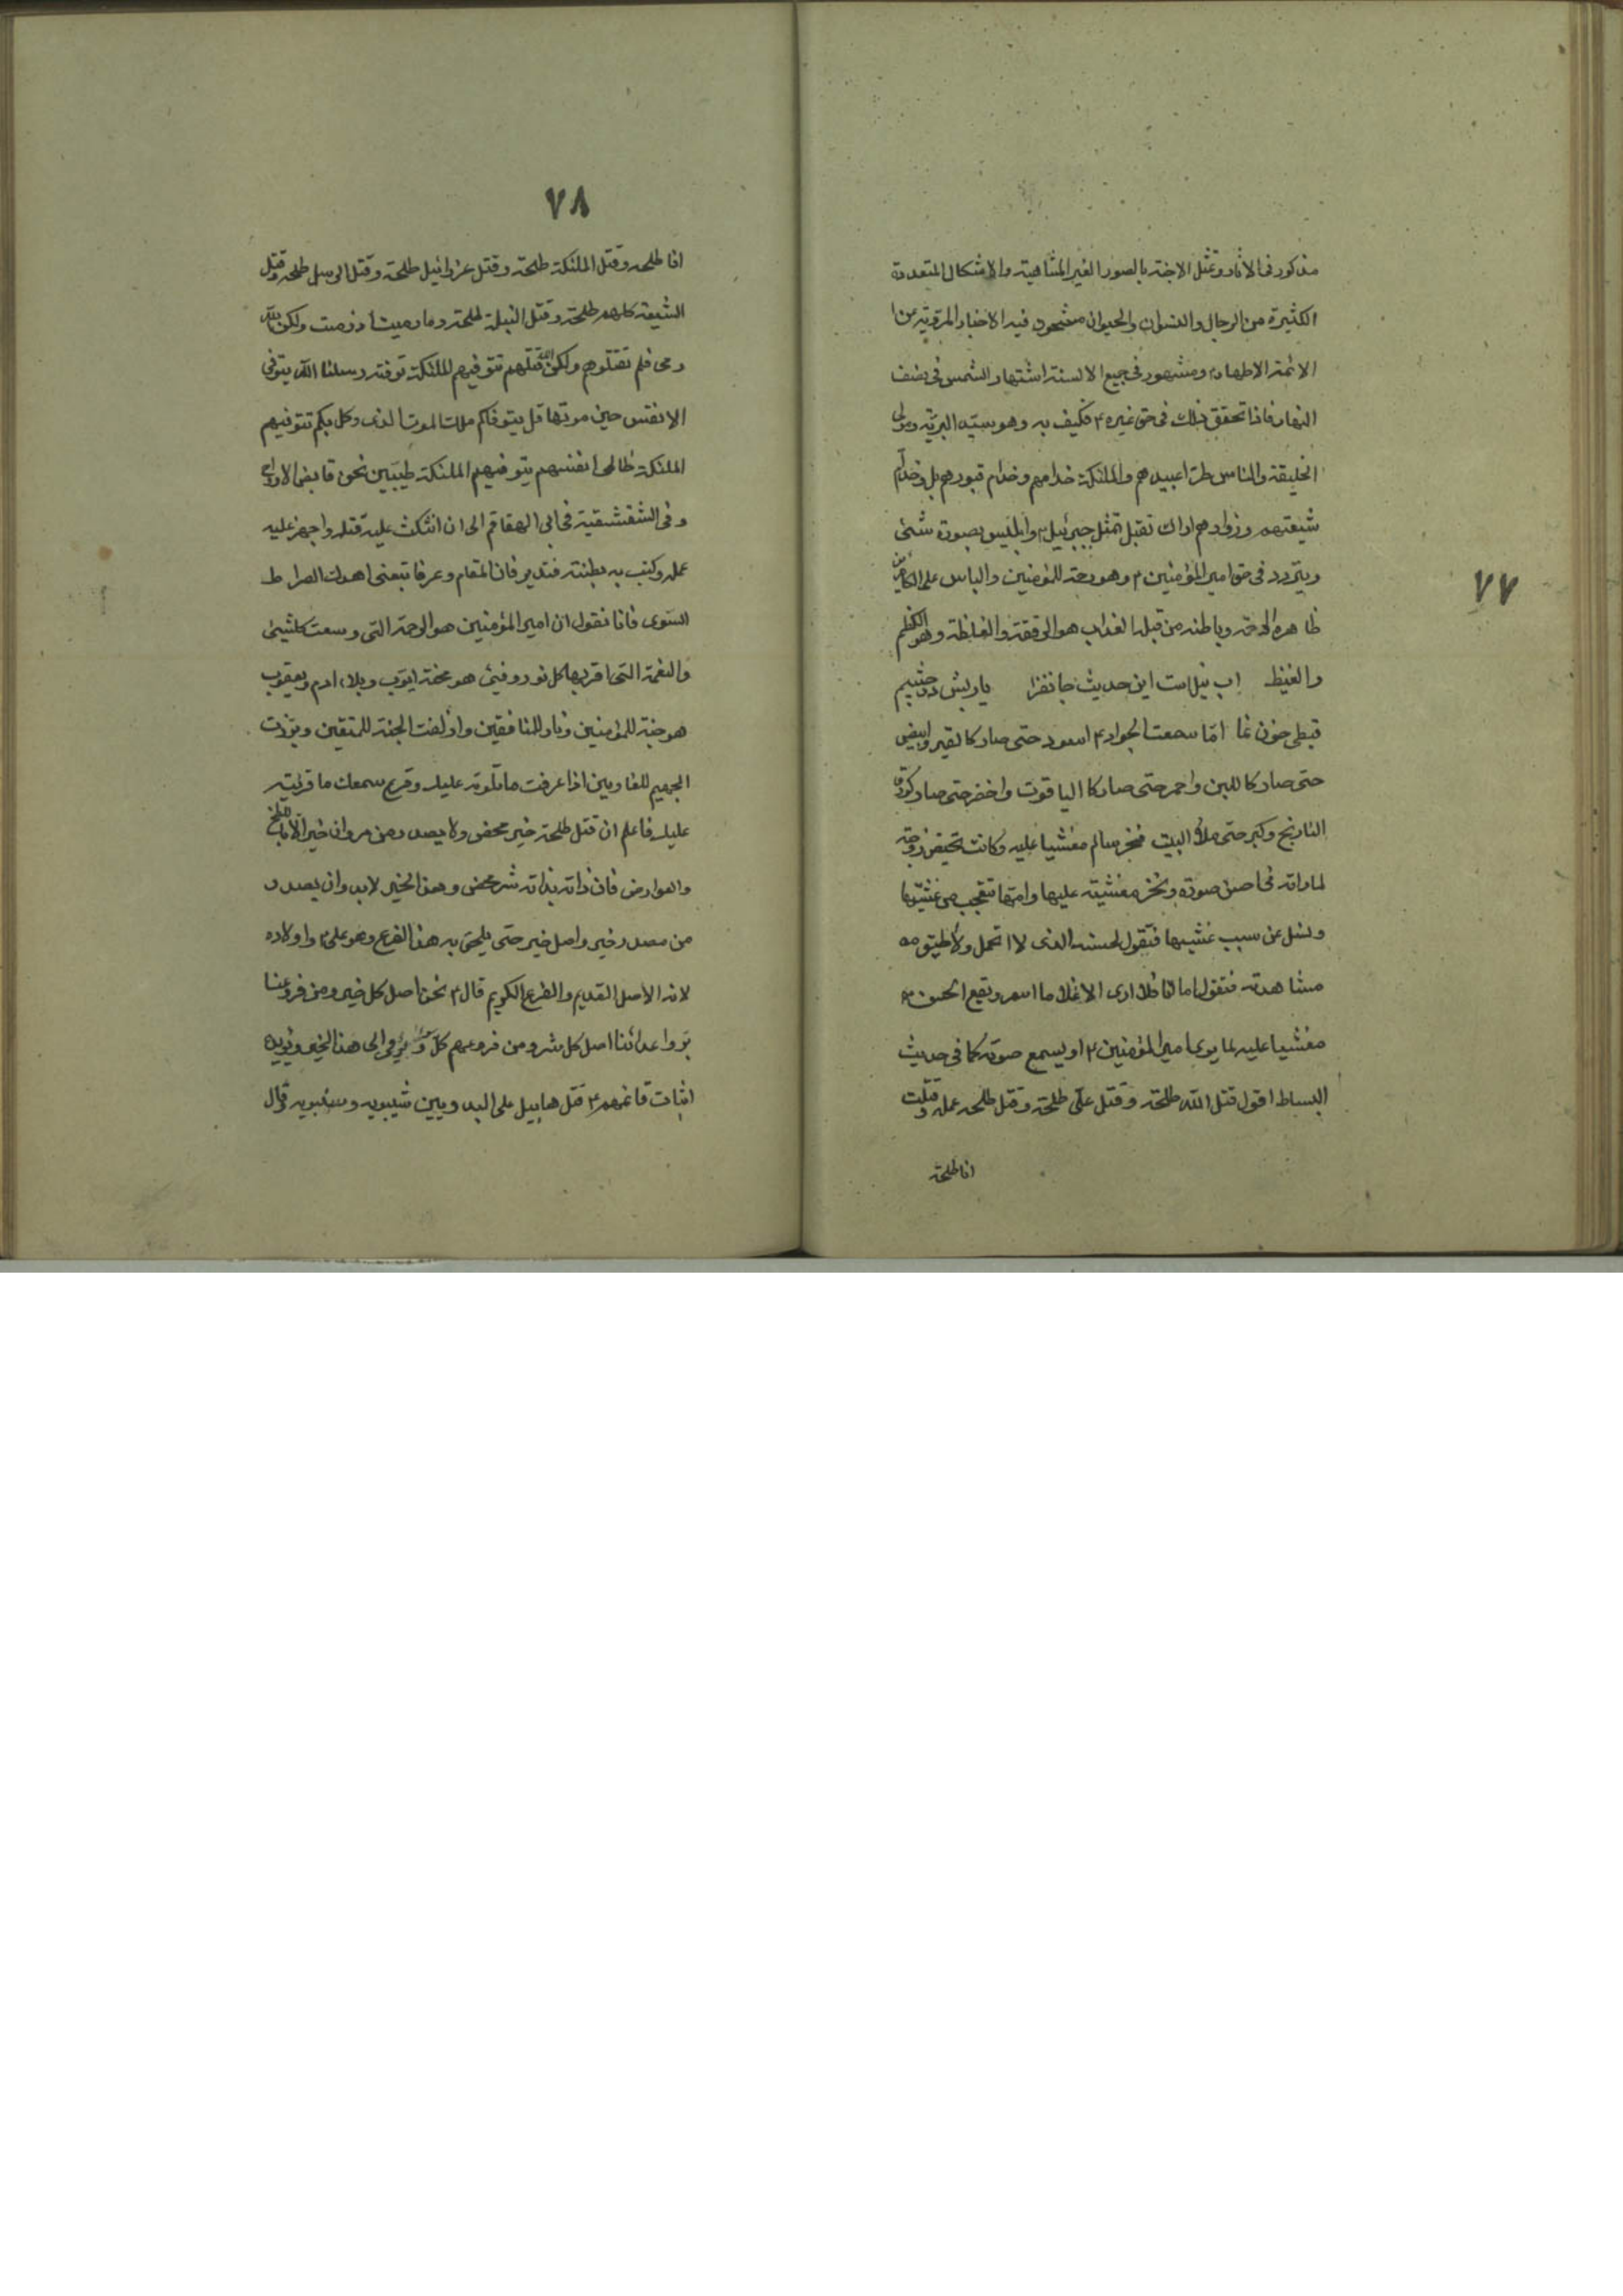 ٧٧
مذكور فى الاثار وتمثل الاجنه بالصور الغير المتناهية والاشكال المتعددة
الكثيرة من الرجال والنسوان والحيوان مشحون فيه الاخبار المروية عن
الائمة الاطهار ومشهور فى جميع الالسنة اشتهار الشمس فى نصف
النهار فاذا تحقق ذلك فى حق غيره ٤ فكيف به وهو سيد البرية ومولى
الخليقة والناس طرا عبيدهم والملئكة خدامهم وخدام قبورهم بل وخدام
شيعتهم وزوارهم اراك تقبل تمثل جبرئيل وابليس بصورة شتى
ويتردد فى حق امير المؤمنين ٤ وهو رحمة للمؤمنين والباس على الكافرين
ظاهره الرحمة وباطنه من قبله العذاب هو الرقة والغلظة وهو الكظم
والغيظ اب نيل است اين حديث جانفزا يا ربش در چشم
قبطى خون نما امّا سمعت الجواد ٤ اسود حتى صار كالقير وابيض
حتى صار كاللبن واحمر حتى صار كا الياقوت واخضر حتى صار كورق
النارنج وكبر حتى ملأ البيت فخر سالم مغشيا عليه وكانت تحيض زوجته
لما راته فى احسن صورة وتخر مغشية عليها وامها تتعجب من غشيتها
وتسئل عن سبب غشيها فتقول لحسنه الذى لا اتحمل ولا اطيق
مشاهدته فتقول اما انا فلا ارى الا غلاما اسمر ويقع الحسن
مغشيا عليه لما يرى امير المؤمنين ٤ او يسمع صوته كما فى حديث
البساط اقول قتل الله طلحة وقتل على طلحة وقتل طلحه عمله وقتلت
انا طلحة
٧٨
انا طلحه وقتل الملئكة طلحة وقتل عزرائيل طلحة وقتل الرسل طلحه وقتل
الشيعة كلهم طلحة وقتل النبلة طلحة وما رميت اذ رميت ولكن الله
رمى فلم تقتلوهم ولكن الله قتلهم تتوفيهم الملئكة توفته رسلنا الله يتوفى
الانفس حين موتها قل يتوفاكم ملك الموت الذى وكل بكم تتوفيهم
الملئكة ظالمى انفسهم يتوفيهم الملئكة طيبين نحن قابض الارواح
وفى الشقشقية فى ابى الهقاقم الى ان انتكث عليه قتله واجهز عليه
عمله وكبت به بطنته فتدبر فان المقام وعرفا تبعنى اهدك الصراط
السوى فانا نقول ان امير المؤمنين هو الرحمة التى وسعت كلشيئ
والنعمة التى اقربها كل نور وفيئ هو محنة ايوب وبلاء ادم ويعقوب
هو جنة للمؤمنين ونار للمنافقين وازلفت الجنة للمتقين وبرزت
الجحيم للغاوين اذا عرفت ما تلوته عليك وقرع سمعك ما قرئته
عليك فاعلم ان قتل طلحة خير محض ولا يصدر من مروان خير الا بالملح
والعوارض فان ذاته بذاته شر محض وهذا الخير لابد وان يصدر
من مصدر خير واصل خير حتى يلحق به هذا الفرع وهو على ٤ واولاده
لانه الاصل القديم والفرع الكريم قال ٤ نحن اصل كل خير ومن فروعنا
بر واعدائنا اصل كل شر ومن فروعهم كل يؤمى الى هذا الخير ويؤيده
اثبات قائمهم ٤ قتل هابيل على اليد وبين شيبويه وسنبويه قال